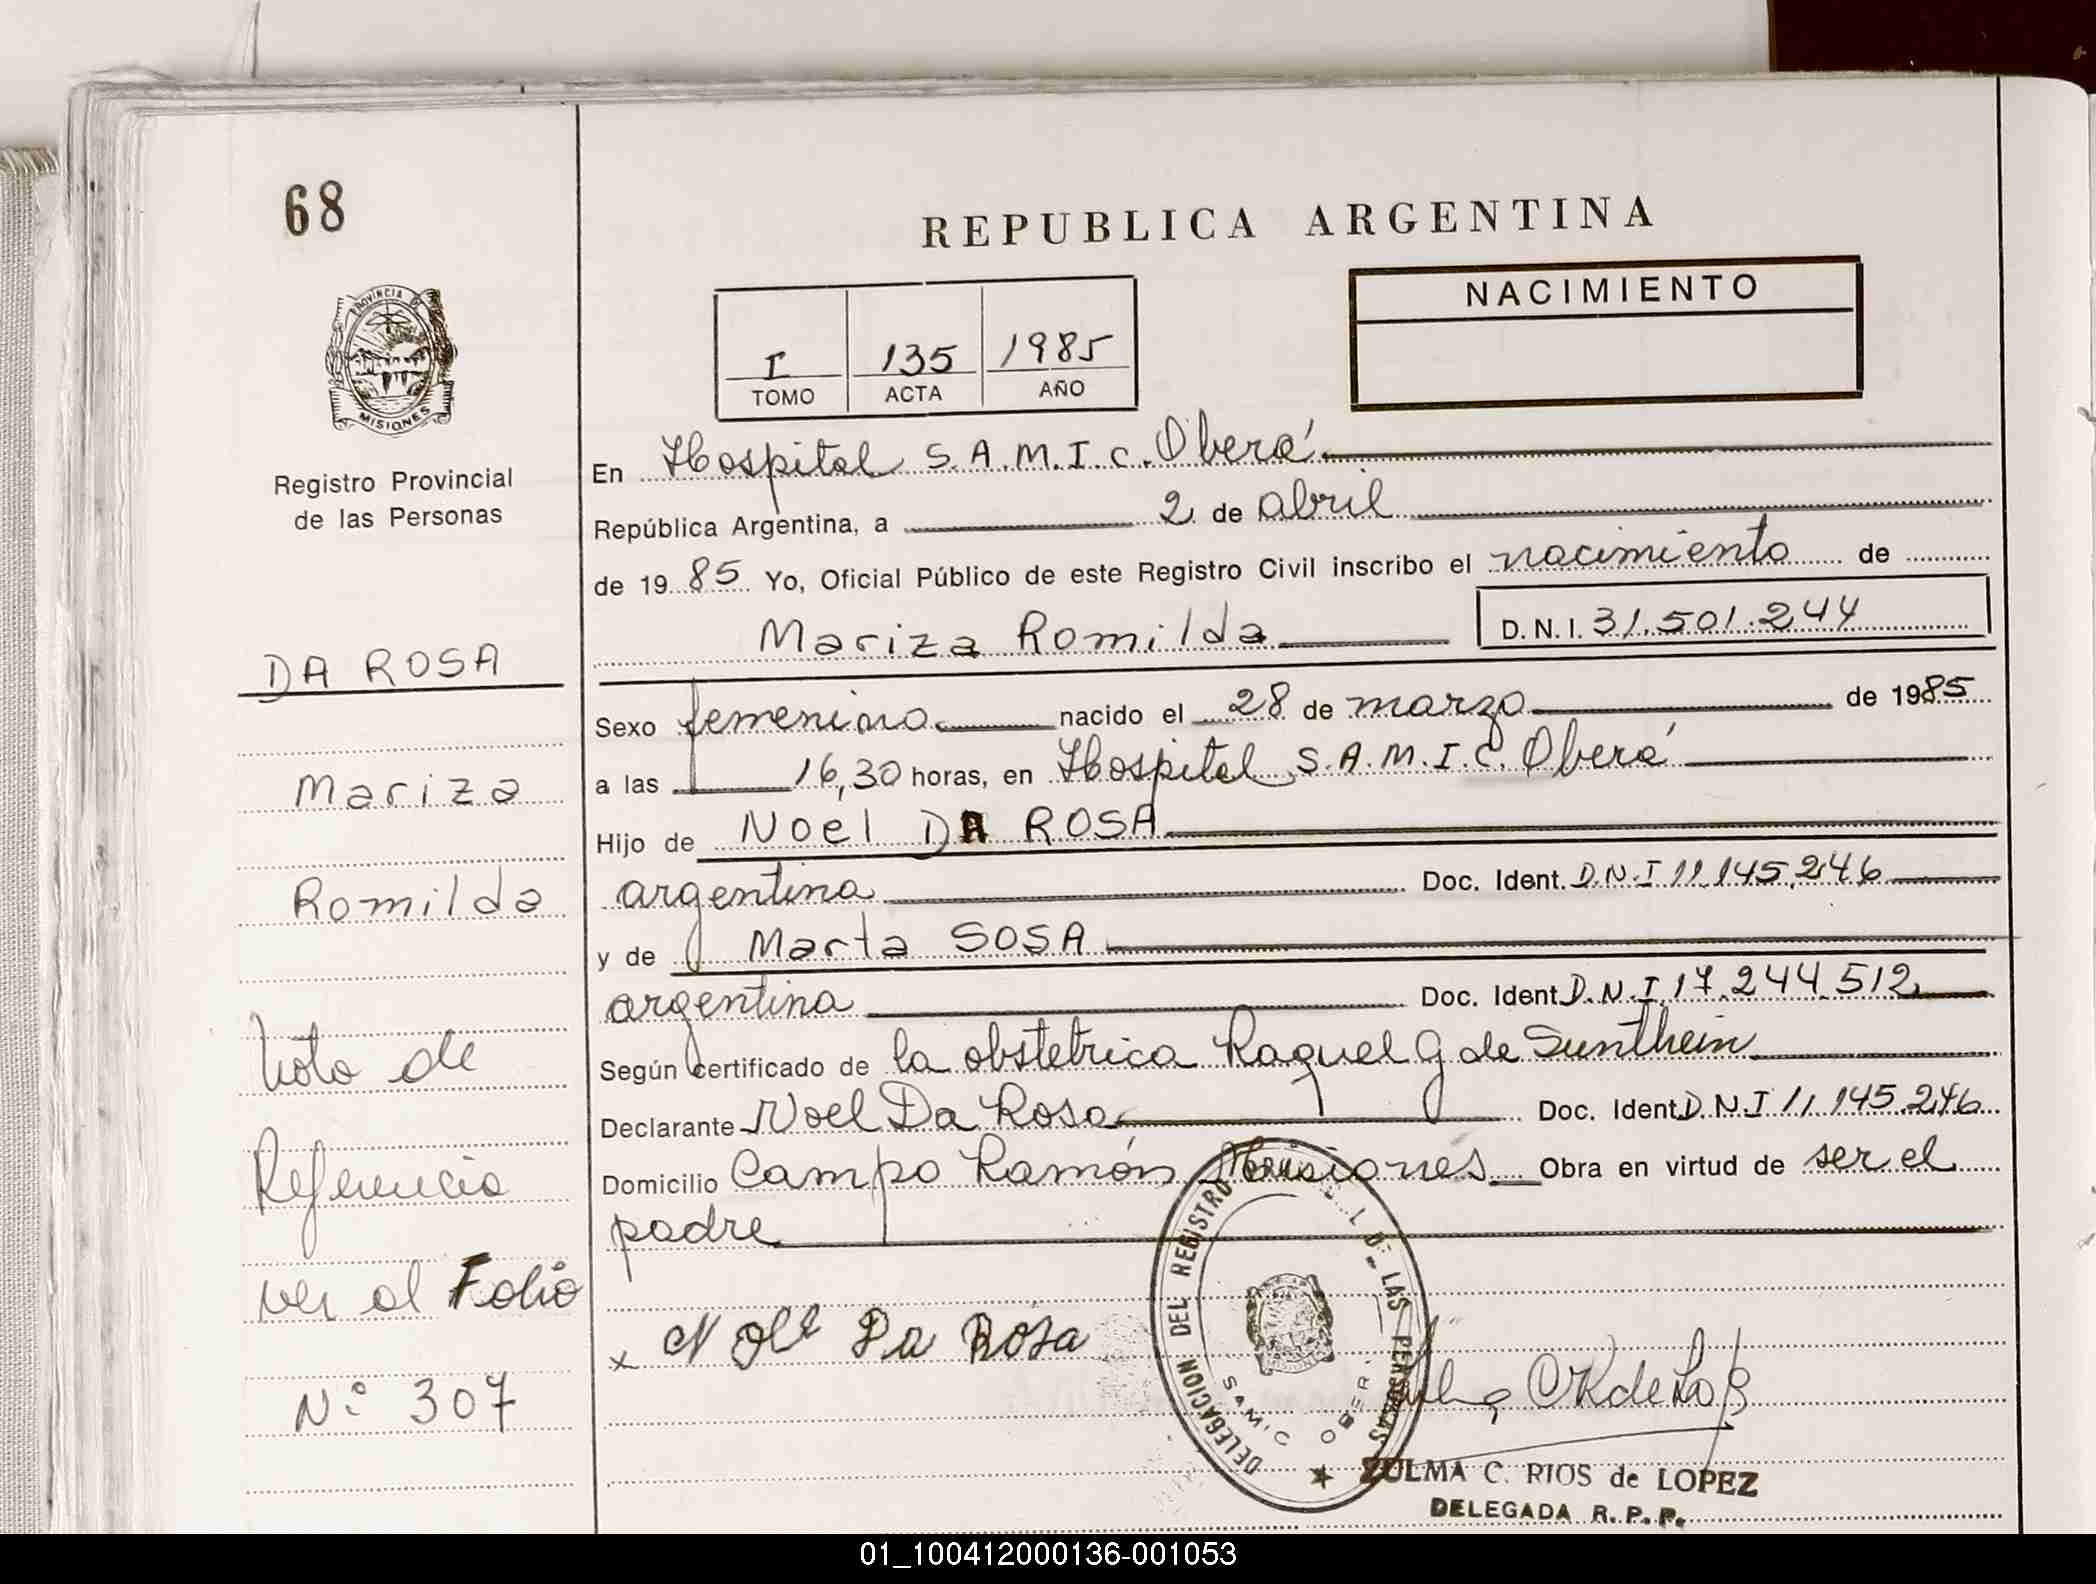 68
REPUBLICA ARGENTINA
PROVINCIA DE
MISIONES
Registro Provincial
de las Personas
I 135 1985
TOMO ACTA AÑO
NACIMIENTO
En Hospital S.A.M.I.C. Oberá
República Argentina, a 2 de abril
de 1985 Yo, Oficial Público de este Registro Civil inscribo el nacimiento de
Mariza Romilda D.N.I. 31.501.244
DA ROSA
Mariza
Romilda
Nota de
Referencia
ver al Folio
Nº 307
Sexo femenino nacido el 28 de marzo de 1985
a las 16,30 horas, en Hospital S.A.M.I.C. Oberá
Hijo de Noel DA ROSA
argentina Doc. Ident. D.N.I 11.145.246
y de Marta SOSA
argentina Doc. Ident D.N.I. 17.244.512
Según certificado de la obstetrica Raquel G de Sunthein
Declarante Noel Da Rosa Doc. Ident D N I 11.145.246
Domicilio Campo Ramón Misiones Obra en virtud de ser el
padre
x Noel Da Rosa
DELEGACION DEL REGISTRO DE LAS PERSONAS
SAMIC OBERA
ZULMA C. RIOS de LOPEZ
DELEGADA R. P. P.
01_100412000136-001053